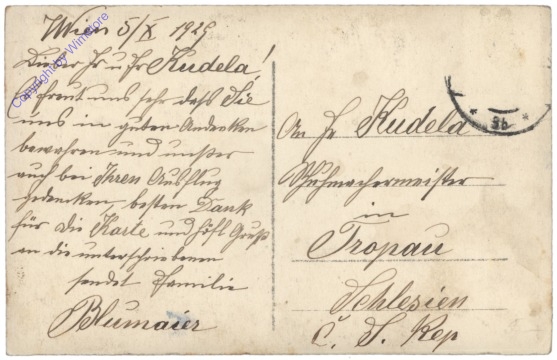 Wien 5/X 1925
Lieber Hr u Fr Kudela!
Es freut uns sehr daß Sie
uns in guten Andenken
bewahren und unser
auch bei Ihren Ausflug
gedenken, besten Dank
für die Karte und höfl Gruß
an die unterschriebenen
sendet Familie
Blumaier
An Fr Kudela
Schuhmachermeister
in
Tropau
Schlesien
Č. S. Rep
Copyright by Winstore